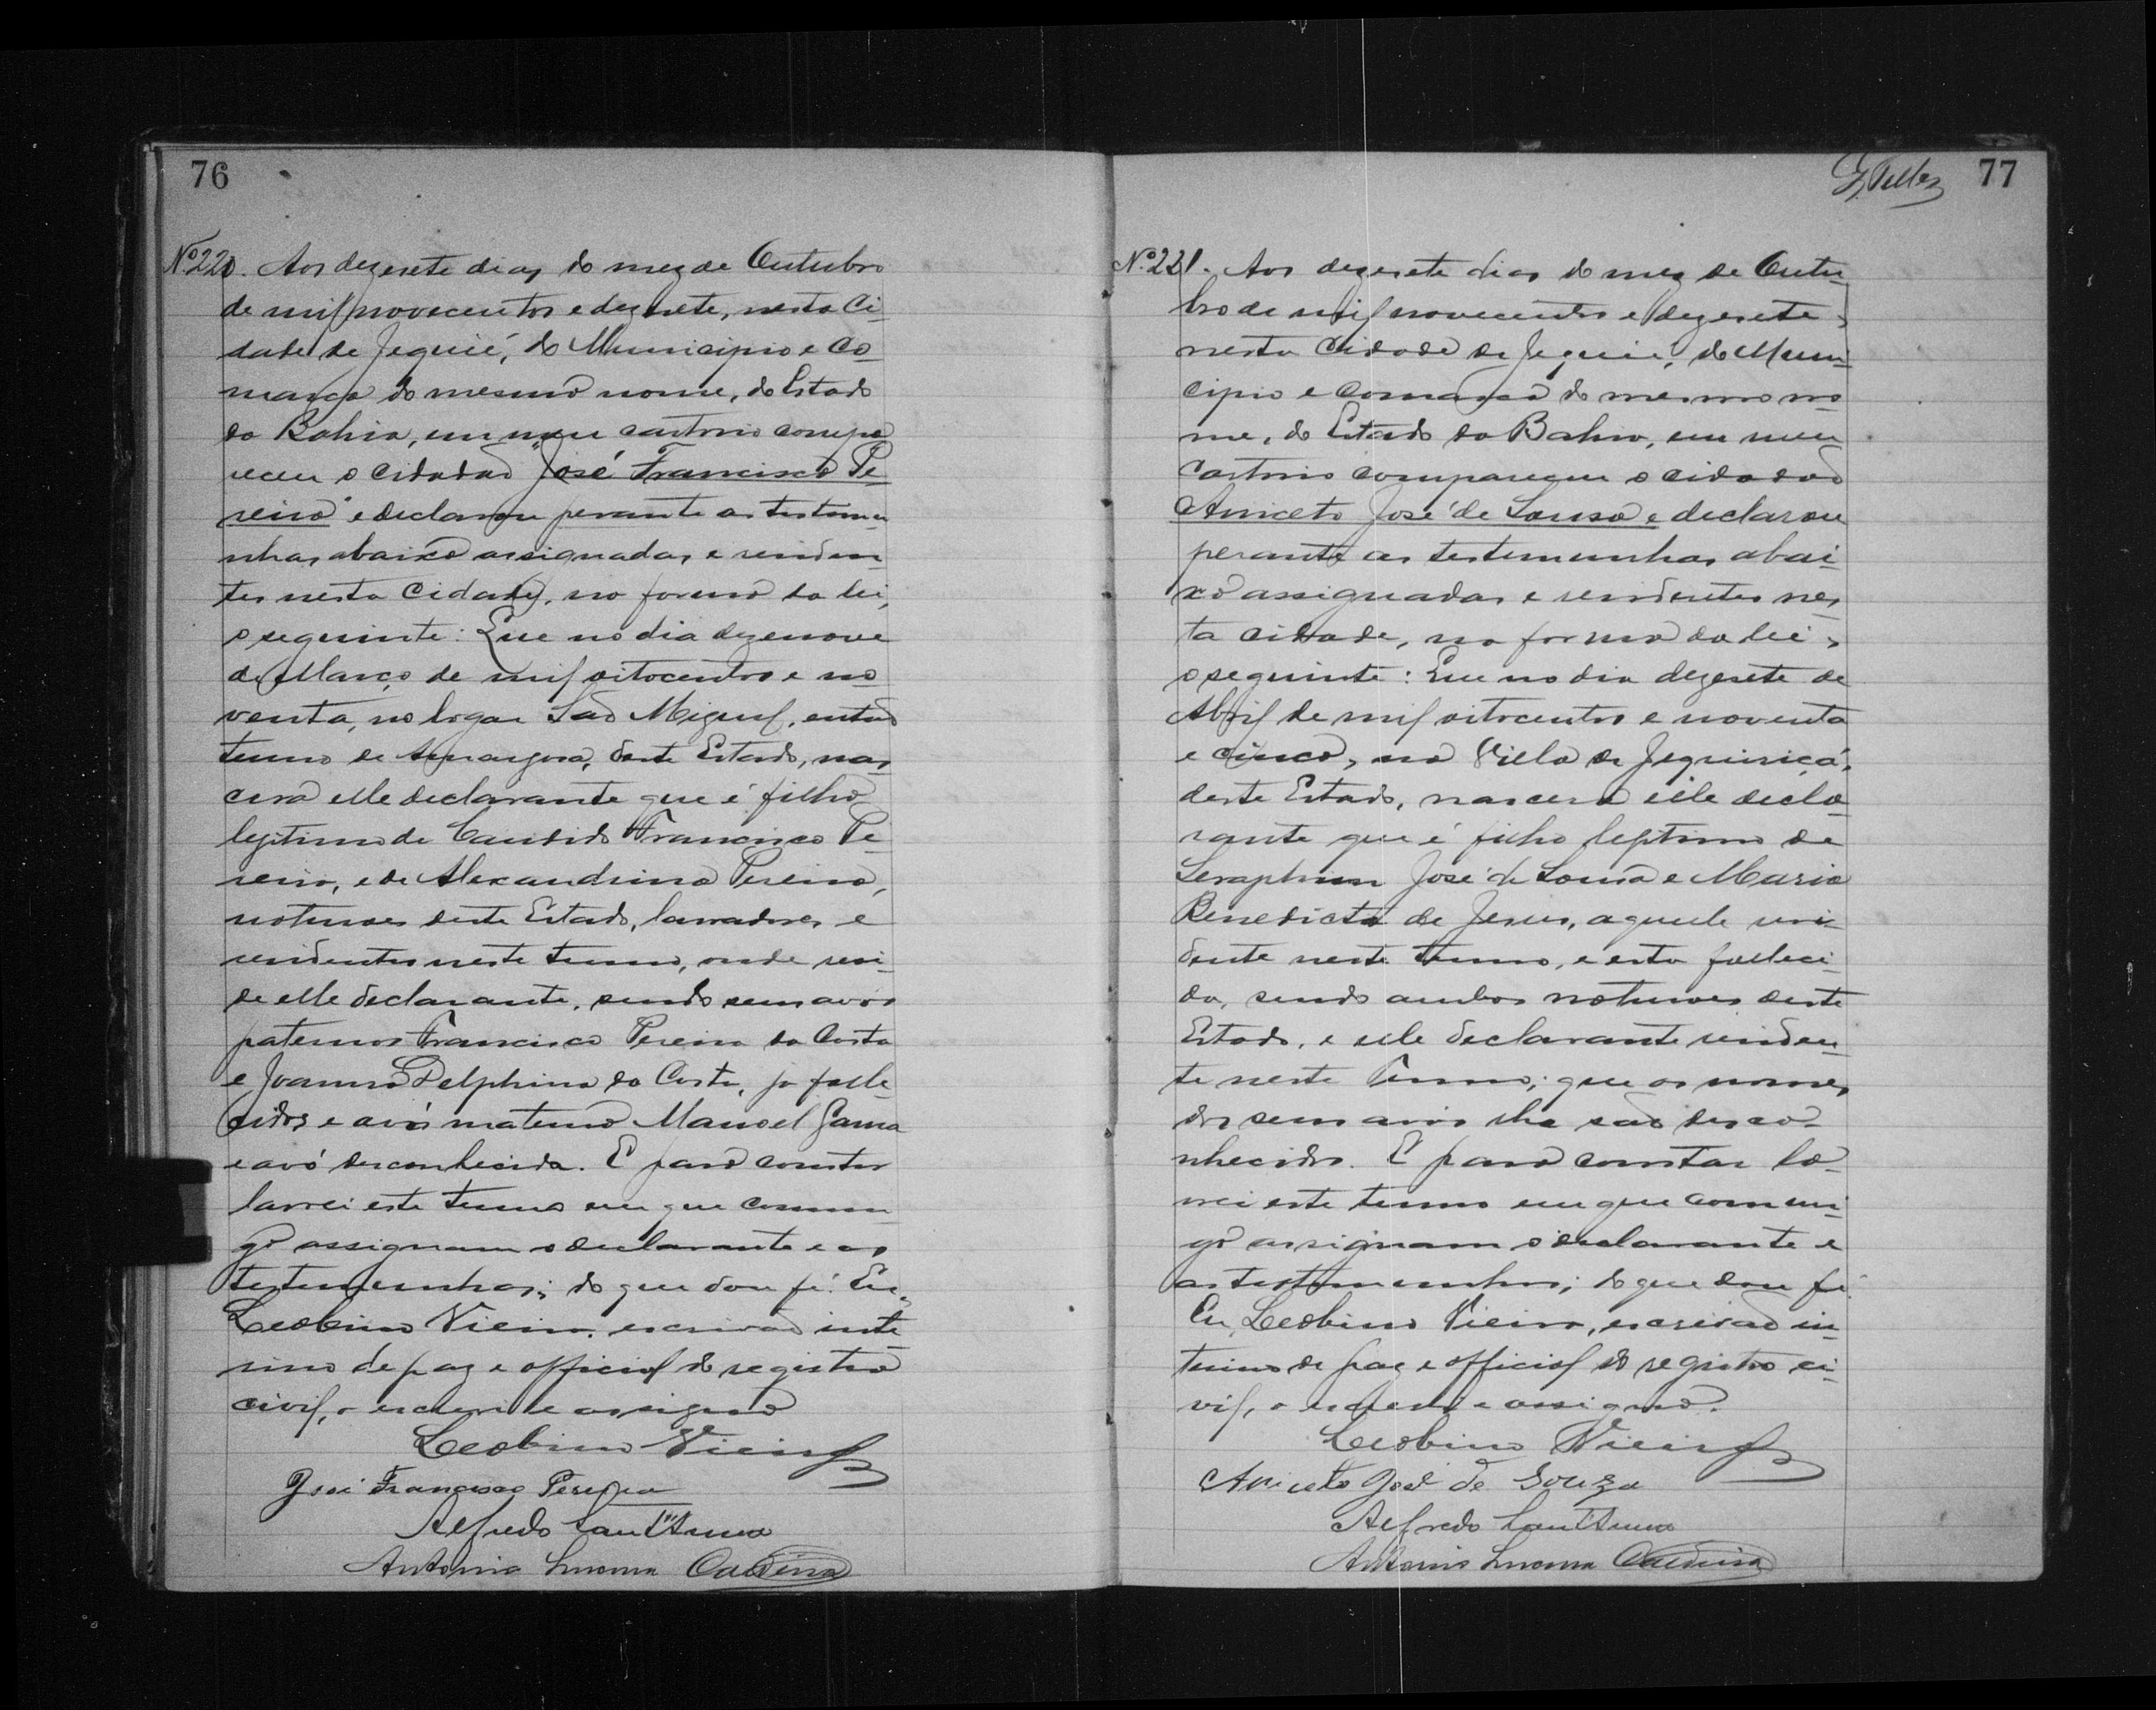 76
Nº220. Aos dezesete dias do mez de Outubro
de mil novecentos e dezesete, nesta Ci-
dade de Jequié, do Municipio e Co-
marca do mesmo nome, do Estado
da Bahia, em meu cartorio compa
receu o cidadão "José Francisco Pe-
reira" e declarou perante as testemu
nhas abaixo assignadas, e residen-
tes nesta Cidade, na forma da lei,
o seguinte: Que no dia dezenove
de Março de mil oitocentos e no
venta, no logar São Miguel, então
termo de Amargosa, deste Estado, nas
cera elle declarante que é filho
legitimo de Candido Francisco Pe-
reira, e de Alexandrina Pereira,
naturaes deste Estado, lavradores e
residentes neste termo, onde resi-
de elle declarante, sendo seus avós
paternos Francisco Pereira da Costa
e Joanna Delphina da Costa, já falle-
cidos e avós materno Manoel Gama
e avó desconhecida. E para constar
lavrei este termo em que commi-
go assignam o declarante e as
testemunhas; do que dou fé. Eu,
Leobino Vieira, escrivão inte
rino de paz e official do registro
civil, o escrevi e assigno
Leobino Vieira
José Francisco Pereira
Alfredo Sant'Anna
Antonio Caldeira
77
Nº.221. Aos dezesete dias do mez de Outu-
bro de mil novecentos e dezesete,
nesta Cidade de Jequié, do Muni-
cipio e Comarca do mesmo no-
me, do Estado da Bahia, em meu
cartorio compareceu o cidadão
Aniceto José de Sousa e declarou
perante as testemunhas abai-
xo assignadas e residentes nes
ta cidade, na forma da lei,
o seguinte: Que no dia dezesete de
Abril de mil oitocentos e noventa
e cinco, na Villa de Jequiriçá,
deste Estado, nascera elle decla
rante que é filho legitimo de
Seraphim José de Sousa e Maria
Benedicta de Jesus, aquele resi-
dente neste termo, e esta falleci-
da, sendo ambos naturaes deste
Estado, e elle declarante residen-
te neste Termo; que os nomes
dos seus avós lhe são desco-
nhecidos. E para constar la-
vrei este termo em que commi-
go assignam o declarante e
as testemunhas; do que dou fé.
Eu, Leobino Vieira, escrivão in-
terino de paz e official do registro ci-
vil, o escrevi e assigno.
Leobino Vieira
Aniceto José de Souza
Alfredo Sant'Anna
Antonio Caldeira